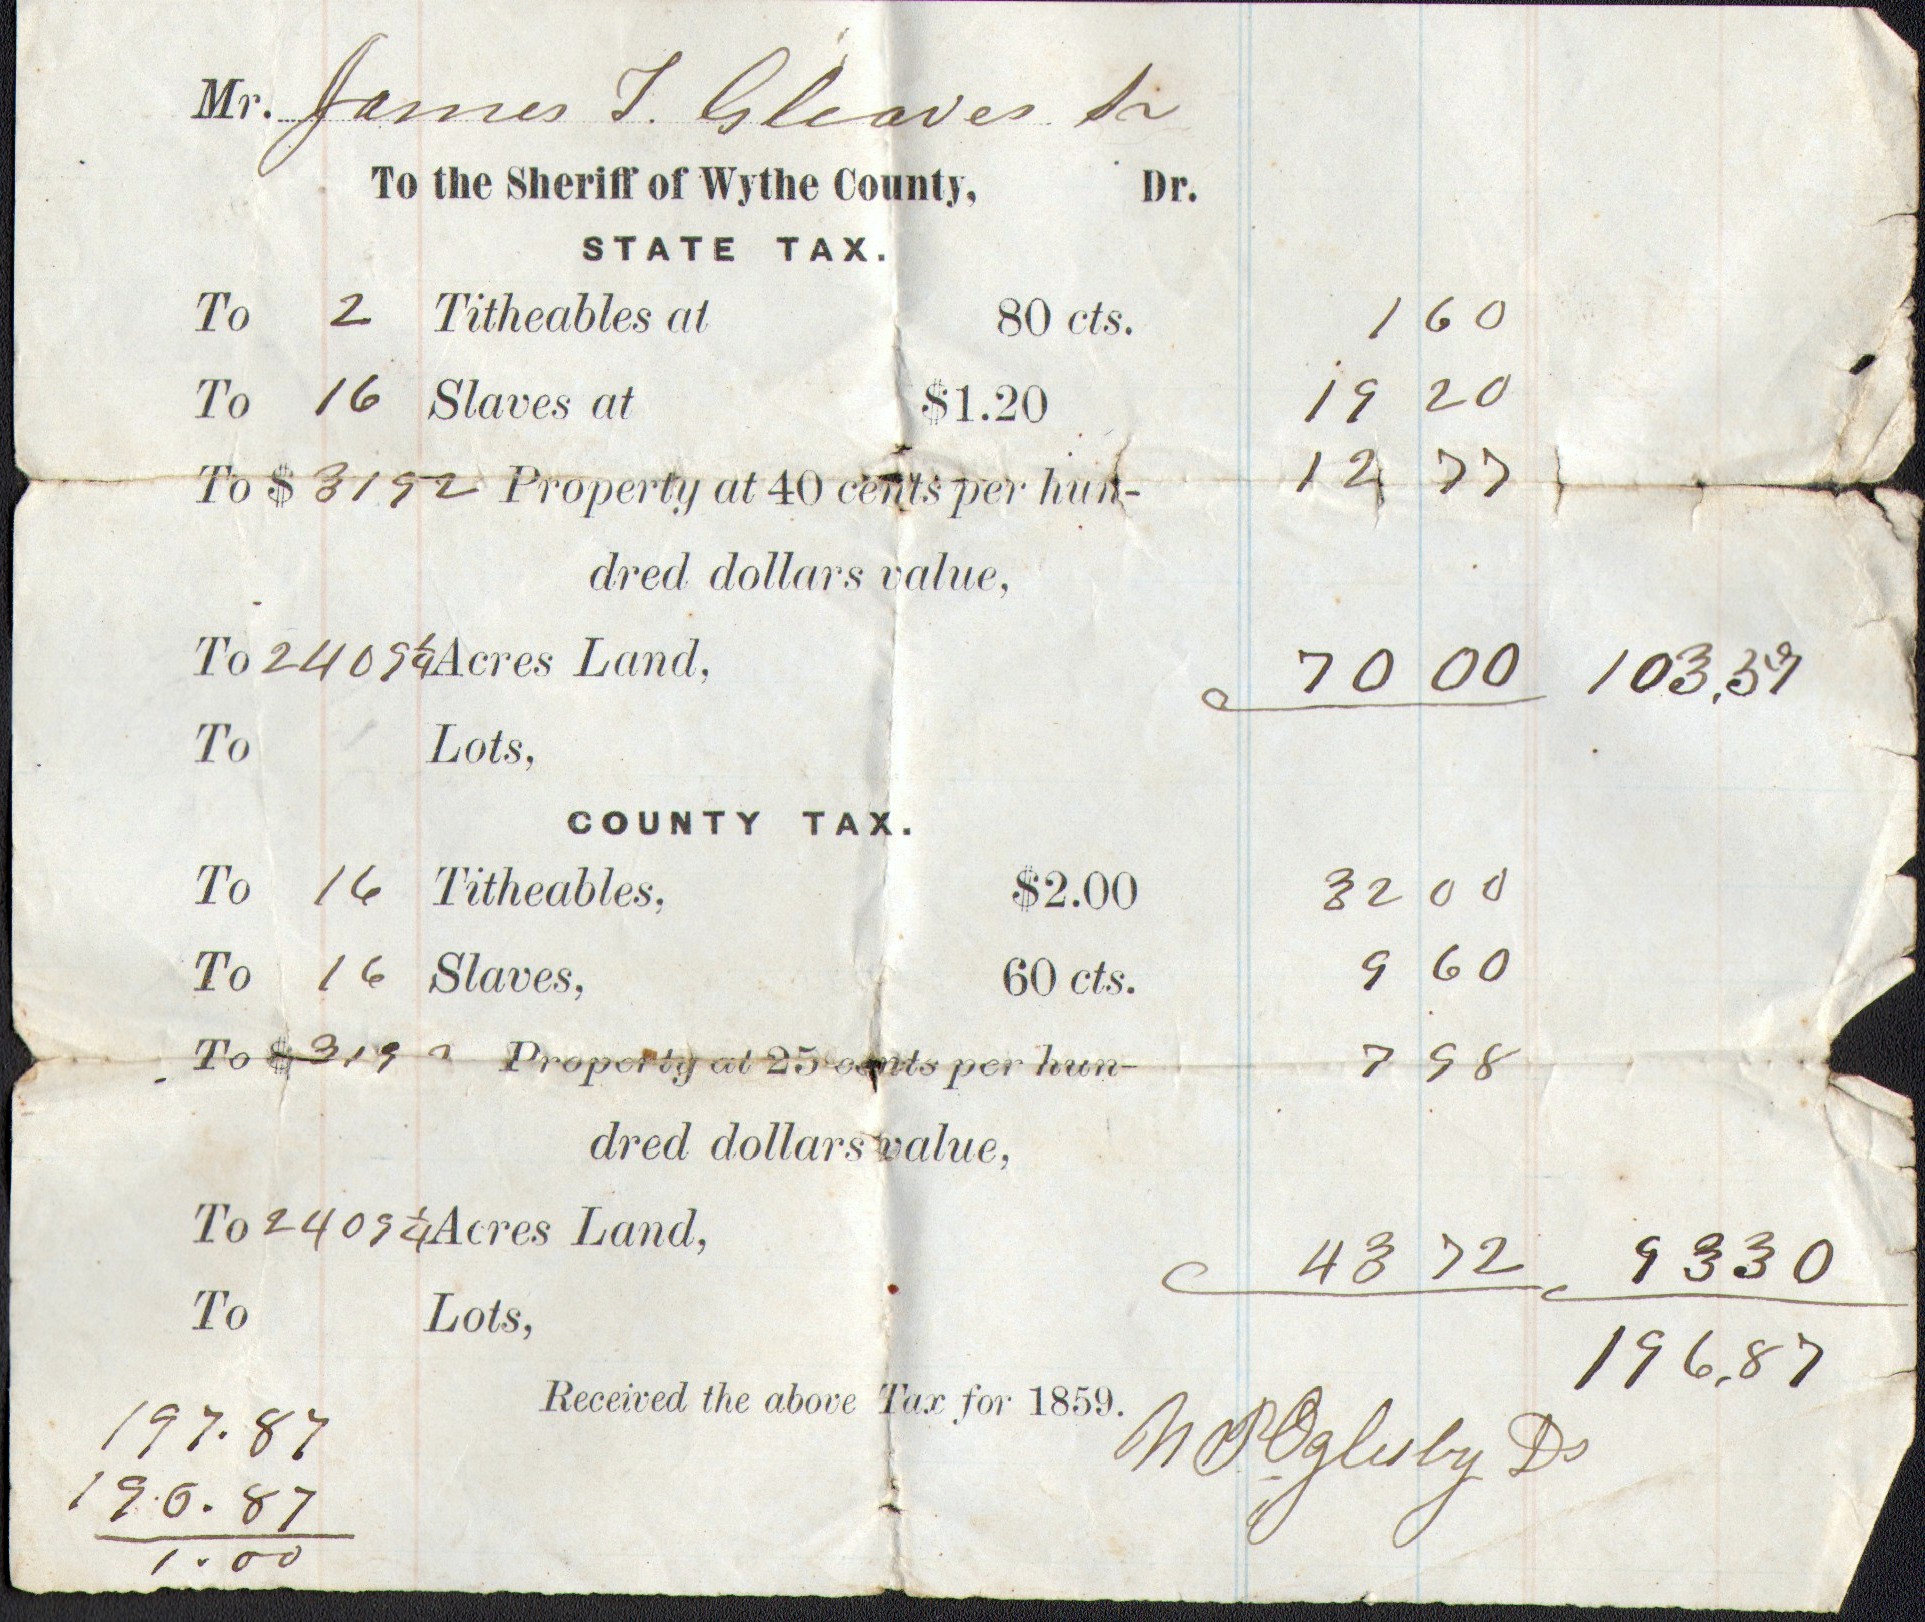 Mr. James T. Gleaves Sr
To the Sheriff of Wythe County, Dr.
STATE TAX.
To 2 Titheables at 80 cts. 1 60
To 16 Slaves at $1.20 19 20
To $ 3192 Property at 40 cents per hun- 12 77
dred dollars value,
To 2409¼ Acres Land, 70 00 103,57
To Lots,
COUNTY TAX.
To 16 Titheables, $2.00 32 00
To 16 Slaves, 60 cts. 9 60
To $ 3192 Property at 25 cents per hun- 7 98
dred dollars value,
To 2409¼ Acres Land, 43 72 93 30
To Lots,
196,87
Received the above Tax for 1859.
Oglesby Ds
197.87
196.87
1.00